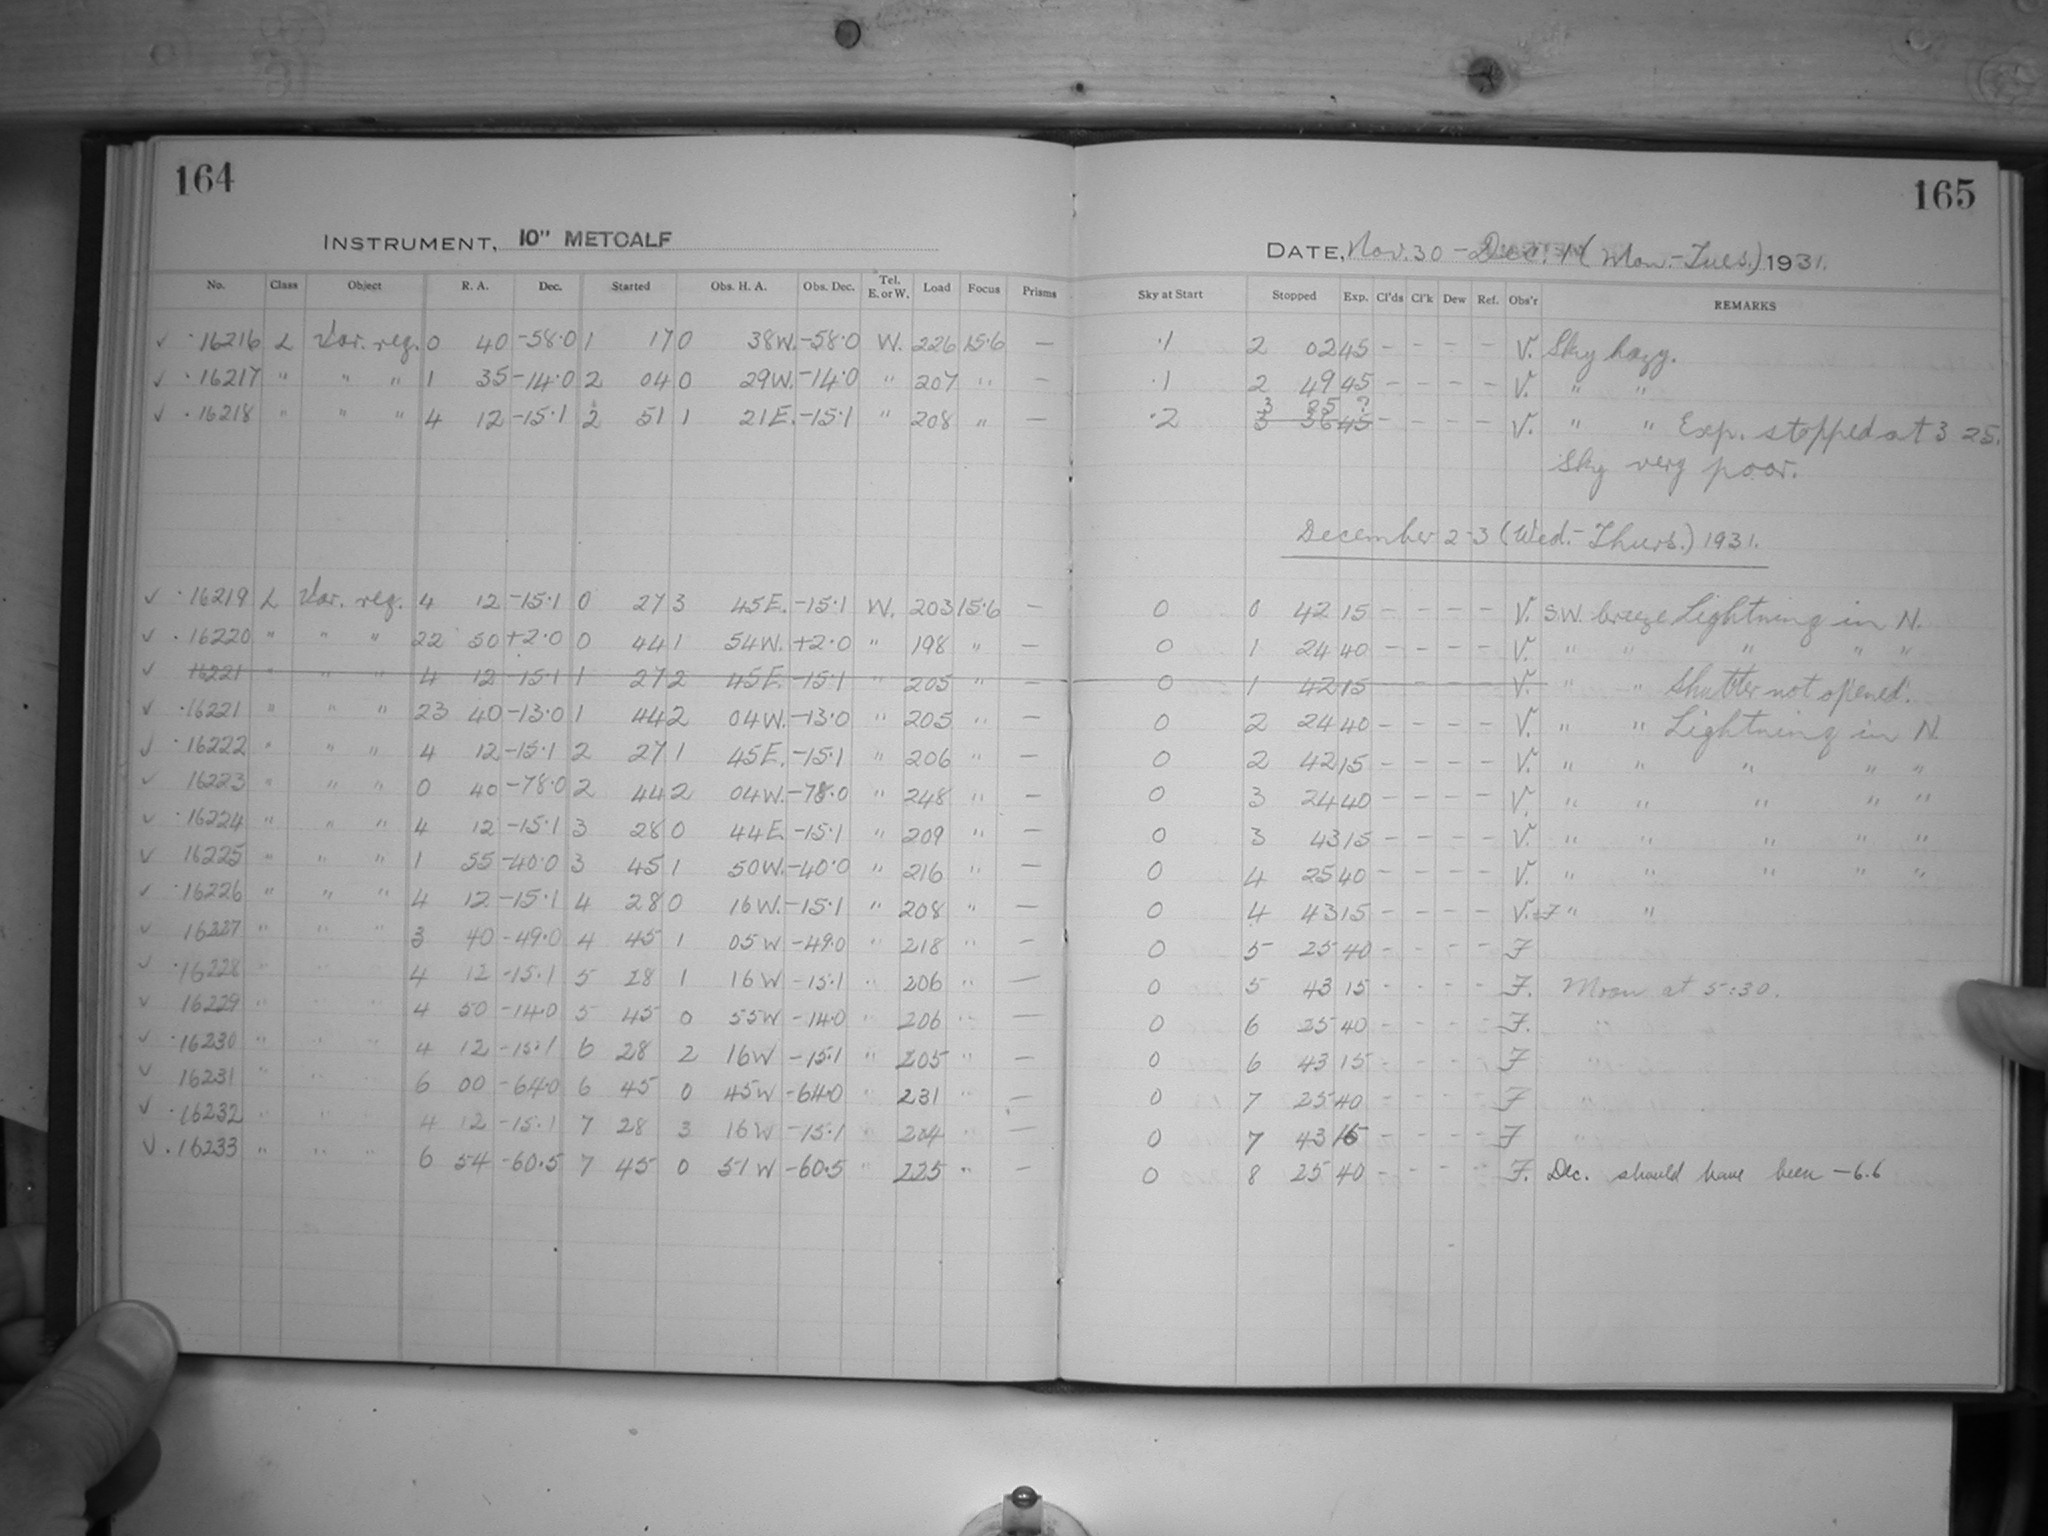 164
165
INSTRUMENT, 10" METCALF
DATE, Nov. 30 - Dec. 1 (Mon.-Tues.) 1931.
No. Class Object R. A. Dec. Started Obs. H. A. Obs. Dec. Tel. E. or W. Load Focus Prisms Sky at Start Stopped Exp. Cl'ds Cl'k Dew Ref. Obs'r REMARKS
✓ · 16216 L Var. reg. 0 40 -58.0 1 17 0 38W. -58.0 W. 226 15.6 — .1 2 02 45 - - - - V. Sky hazy.
✓ · 16217 " " " 1 35 -14.0 2 04 0 29W. -14.0 " 207 " — .1 2 49 45 - - - - V. " "
3 25 ?
✓ · 16218 " " " 4 12 -15.1 2 51 1 21E. -15.1 " 208 " — .2 3 36 45 - - - - V. " " Exp. stopped at 3 25.
Sky very poor.
December 2-3 (Wed.-Thurs.) 1931.
✓ · 16219 L Var. reg. 4 12 -15.1 0 27 3 45E. -15.1 W. 203 15.6 — 0 0 42 15 - - - - V. S.W. breeze Lightning in N.
✓ · 16220 " " " 22 50 +2.0 0 44 1 54W. +2.0 " 198 " — 0 1 24 40 - - - - V. " " " " "
✓ 16221 " " " 4 12 -15.1 1 27 2 45E. -15.1 " 205 " — 0 1 42 15 - - - - V. " " Shutter not opened.
✓ · 16221 " " " 23 40 -13.0 1 44 2 04W. -13.0 " 205 " — 0 2 24 40 - - - - V. " " Lightning in N.
✓ · 16222 " " " 4 12 -15.1 2 27 1 45E. -15.1 " 206 " — 0 2 42 15 - - - - V. " " " " "
✓ 16223 " " " 0 40 -78.0 2 44 2 04W. -78.0 " 248 " — 0 3 24 40 - - - - V. " " " " "
✓ · 16224 " " " 4 12 -15.1 3 28 0 44E. -15.1 " 209 " — 0 3 43 15 - - - - V. " " " " "
✓ 16225 " " " 1 55 -40.0 3 45 1 50W. -40.0 " 216 " — 0 4 25 40 - - - - V. " " " " "
✓ · 16226 " " " 4 12 -15.1 4 28 0 16W. -15.1 " 208 " — 0 4 43 15 - - - - V.+F " "
✓ 16227 " " " 3 40 -49.0 4 45 1 05W -49.0 " 218 " — 0 5 25 40 - - - - F
✓ · 16228 " " " 4 12 -15.1 5 28 1 16W -15.1 " 206 " — 0 5 43 15 - - - - F. Moon at 5:30.
✓ 16229 " " " 4 50 -14.0 5 45 0 55W -14.0 " 206 " — 0 6 25 40 - - - - F. "
✓ · 16230 " " " 4 12 -15.1 6 28 2 16W -15.1 " 205 " — 0 6 43 15 - - - - F "
✓ 16231 " " " 6 00 -64.0 6 45 0 45W -64.0 " 231 " — 0 7 25 40 - - - - F "
✓ · 16232 " " " 4 12 -15.1 7 28 3 16W -15.1 " 204 " — 0 7 43 15 - - - - F "
✓ · 16233 " " " 6 54 -60.5 7 45 0 51W -60.5 " 225 " — 0 8 25 40 - - - - F. Dec. should have been -6.6